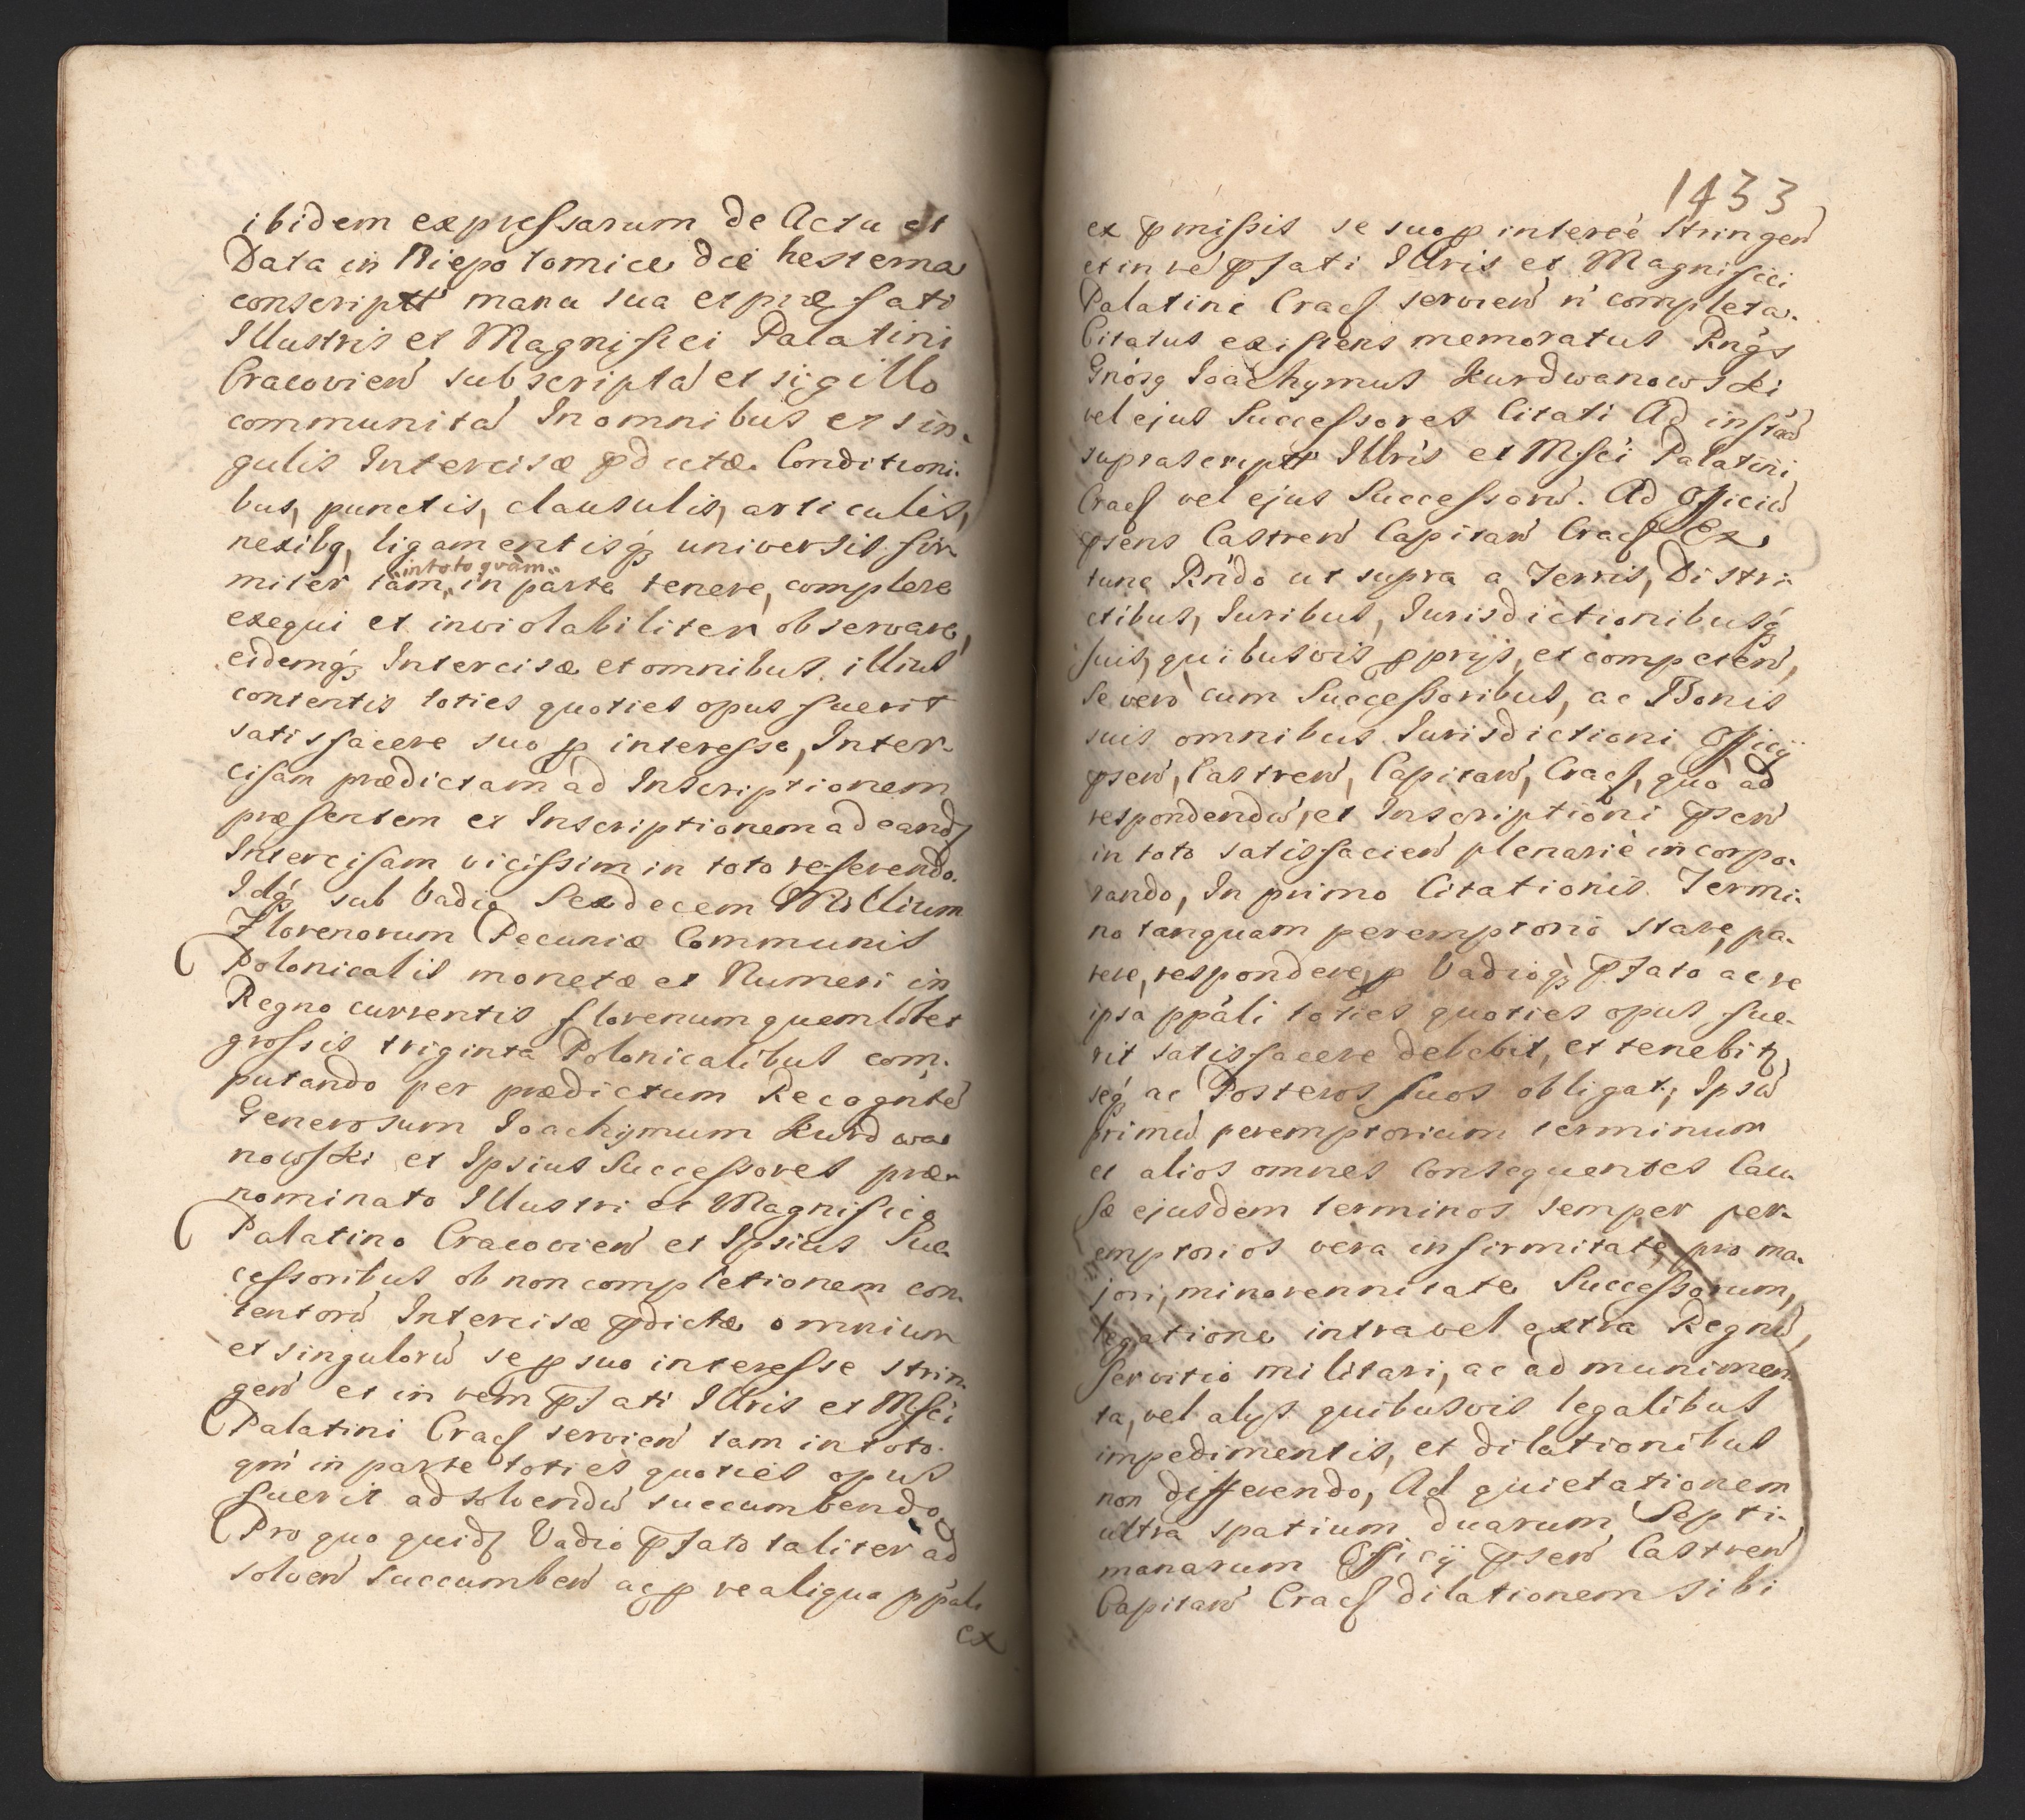 ibidem expressarum de Actu et
Data in Niepotomice die hesterna
conscriptt manu sua et præfati
Illustris et Magnifici Palatini
Cracovien̄ subscripta et sigillo
communita In omnibus et sin-
gulis Intercisæ pdictæ Conditioni-
bus, punctis, clausulis, articulis,
nexibq, ligamentisq; universis fir-
miter tàm, in toto quàm in parte tenere, complere
exequi et inviolabiliter observare,
eidemq; Intercisæ et omnibus illius
contentis toties quoties opus fuerit
satisfacere suo p interesse, Inter-
cisam prædictam ad Inscriptionem
præsentem et Inscriptionem ad eand
Intercisam vicissim in toto referendo.
Idq; sub Vadio Sexdecem Millium
Florenorum Pecuniæ Communis
Polonicalis monetæ et Numeri in
Regno currentis florenum quemlibet
grossis triginta Polonicalibus com-
putando per prædictum Recogntē
Generosum Joachymum Kurdwa-
nowski et Ipsius Successores præ-
nominato Illustri et Magnifico
Palatino Cracovien̄ et Ipsius Suc-
cessoribus ob non completionem con-
tentorū Intercisæ pdictæ omnium
et singulorū se p suo interesse strin-
gen̄ et in rem pfati Illris et Mfci
Palatini Cracs servien̄ tam in toto
qm̄ in parte toties quoties opus
fuerit ad solvendū succumbendo
Pro quo quid Vadio pfato taliter ad
solven̄ succumben̄ ac p re aliqua ppali
ex
1433
ex pmissis se suo p intereē stringen̄
et in rē pfati Illris et Magnifici
Palatini Cracs servien̄ n̄ completa.
Citatus existens memoratus Rngs
Gnosq Joachymus Kurdwanowski
vel ejus Successores Citati Ad instān̄
suprascriptt Illris et Mfci Palatini
Cracs vel ejus Successorū. Ad Officiū
psens Castren̄ Capitan̄ Cracs Ex
tunc Rndo ut supra a Terris, Distri-
ctibus, Juribus, Jurisdictionibusq;
suis, quibusvis pprijs, et competen̄,
Se vero cum Successoribus, ac Bonis
suis omnibus Jurisdictioni Officij
psen̄, Castren̄, Capitan̄, Cracs, quo ad
respondendū, et Inscriptioni psen̄
in toto satisfacien̄ plenariè incorpo-
rando, In primo Citationis Termi-
no tanquam peremptorio stare, pa-
rere, respondere, p Vadioq; pfato ac re
ipsa ppali toties quoties opus fue-
rit satisfacere debebit, et tenebitr,
seq; ac Posteros suos obligat; Ipsū
primū peremptorium terminum
et alios omnes Consequentes Cau-
sæ ejusdem terminos semper per-
emptorios vera infirmitate, pro ma-
jori, minorennitate Successorum,
legatione intra vel extra Regnū,
servitio militari, ac ad munimen-
ta, vel alijs quibusvis legalibus
impedimentis, et dilationibus
non differendo, Ad quietationem
ultra spatium duarum Septi-
manarum Officij psen̄ Castren̄
Capitan̄ Cracs dilationem sibi